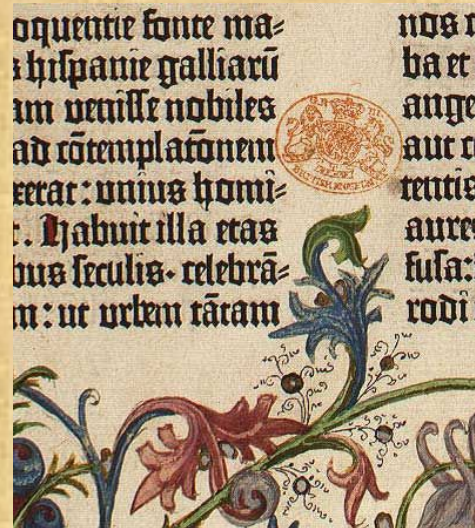 oquentie fonte ma=
s hispanie galliarū
am venisse nobiles
ad cōtemplatōnem
xerat: unius homi=
t. Habuit illa etas
bus seculis. celebrā=
m: ut urbem tātam
nos
ba et
ange
aut c
tentis
aure
fusa:
rodi